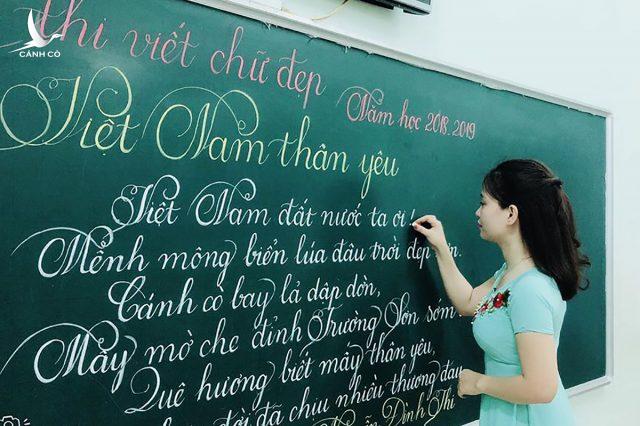 CÁNH CÒ
thi viết chữ đẹp
Năm học 2018.2019
Việt Nam thân yêu
Việt Nam đất nước ta ơi!
Mênh mông biển lúa đâu trời đẹp
Cánh cò bay lả dập dờn,
Mây mờ che đỉnh Trường Sơn sớm
Quê hương biết mấy thân yêu,
đời đã chịu nhiều thương đau
Đình Thi